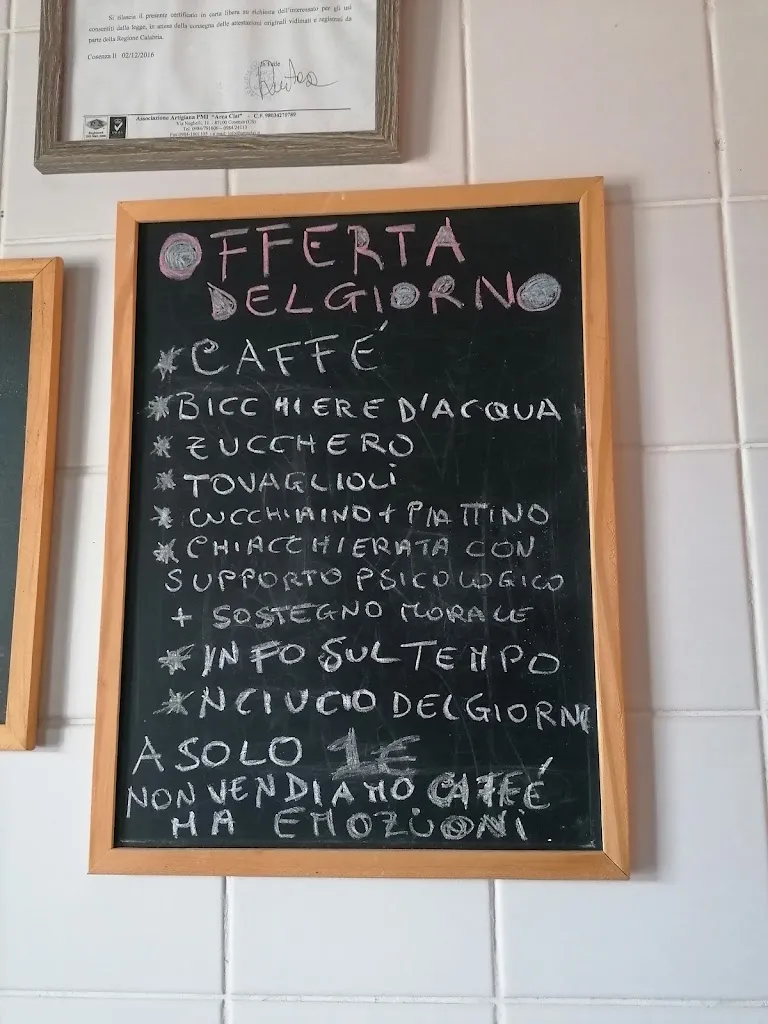 Si rilascia il presente certificato in carta libera su richiesta dell'interessato per gli usi
consentiti dalla legge, in attesa della consegna delle attestazioni originali vidimati e registrati da
parte della Regione Calabria.
Cosenza lì 02/12/2016
In Fede
Associazione Artigiana PMI "Area Clai" - C.F. 98034270789
OFFERTA
DEL GIORNO
* CAFFÉ
* BICCHIERE D'ACQUA
* ZUCCHERO
* TOVAGLIOLI
* CUCCHIAINO + PIATTINO
* CHIACCHIERATA CON
SUPPORTO PSICOLOGICO
+ SOSTEGNO MORALE
* INFO SUL TEMPO
* NCIUCIO DEL GIORNO
A SOLO 1€
NON VENDIAMO CAFFÉ
MA EMOZIONI